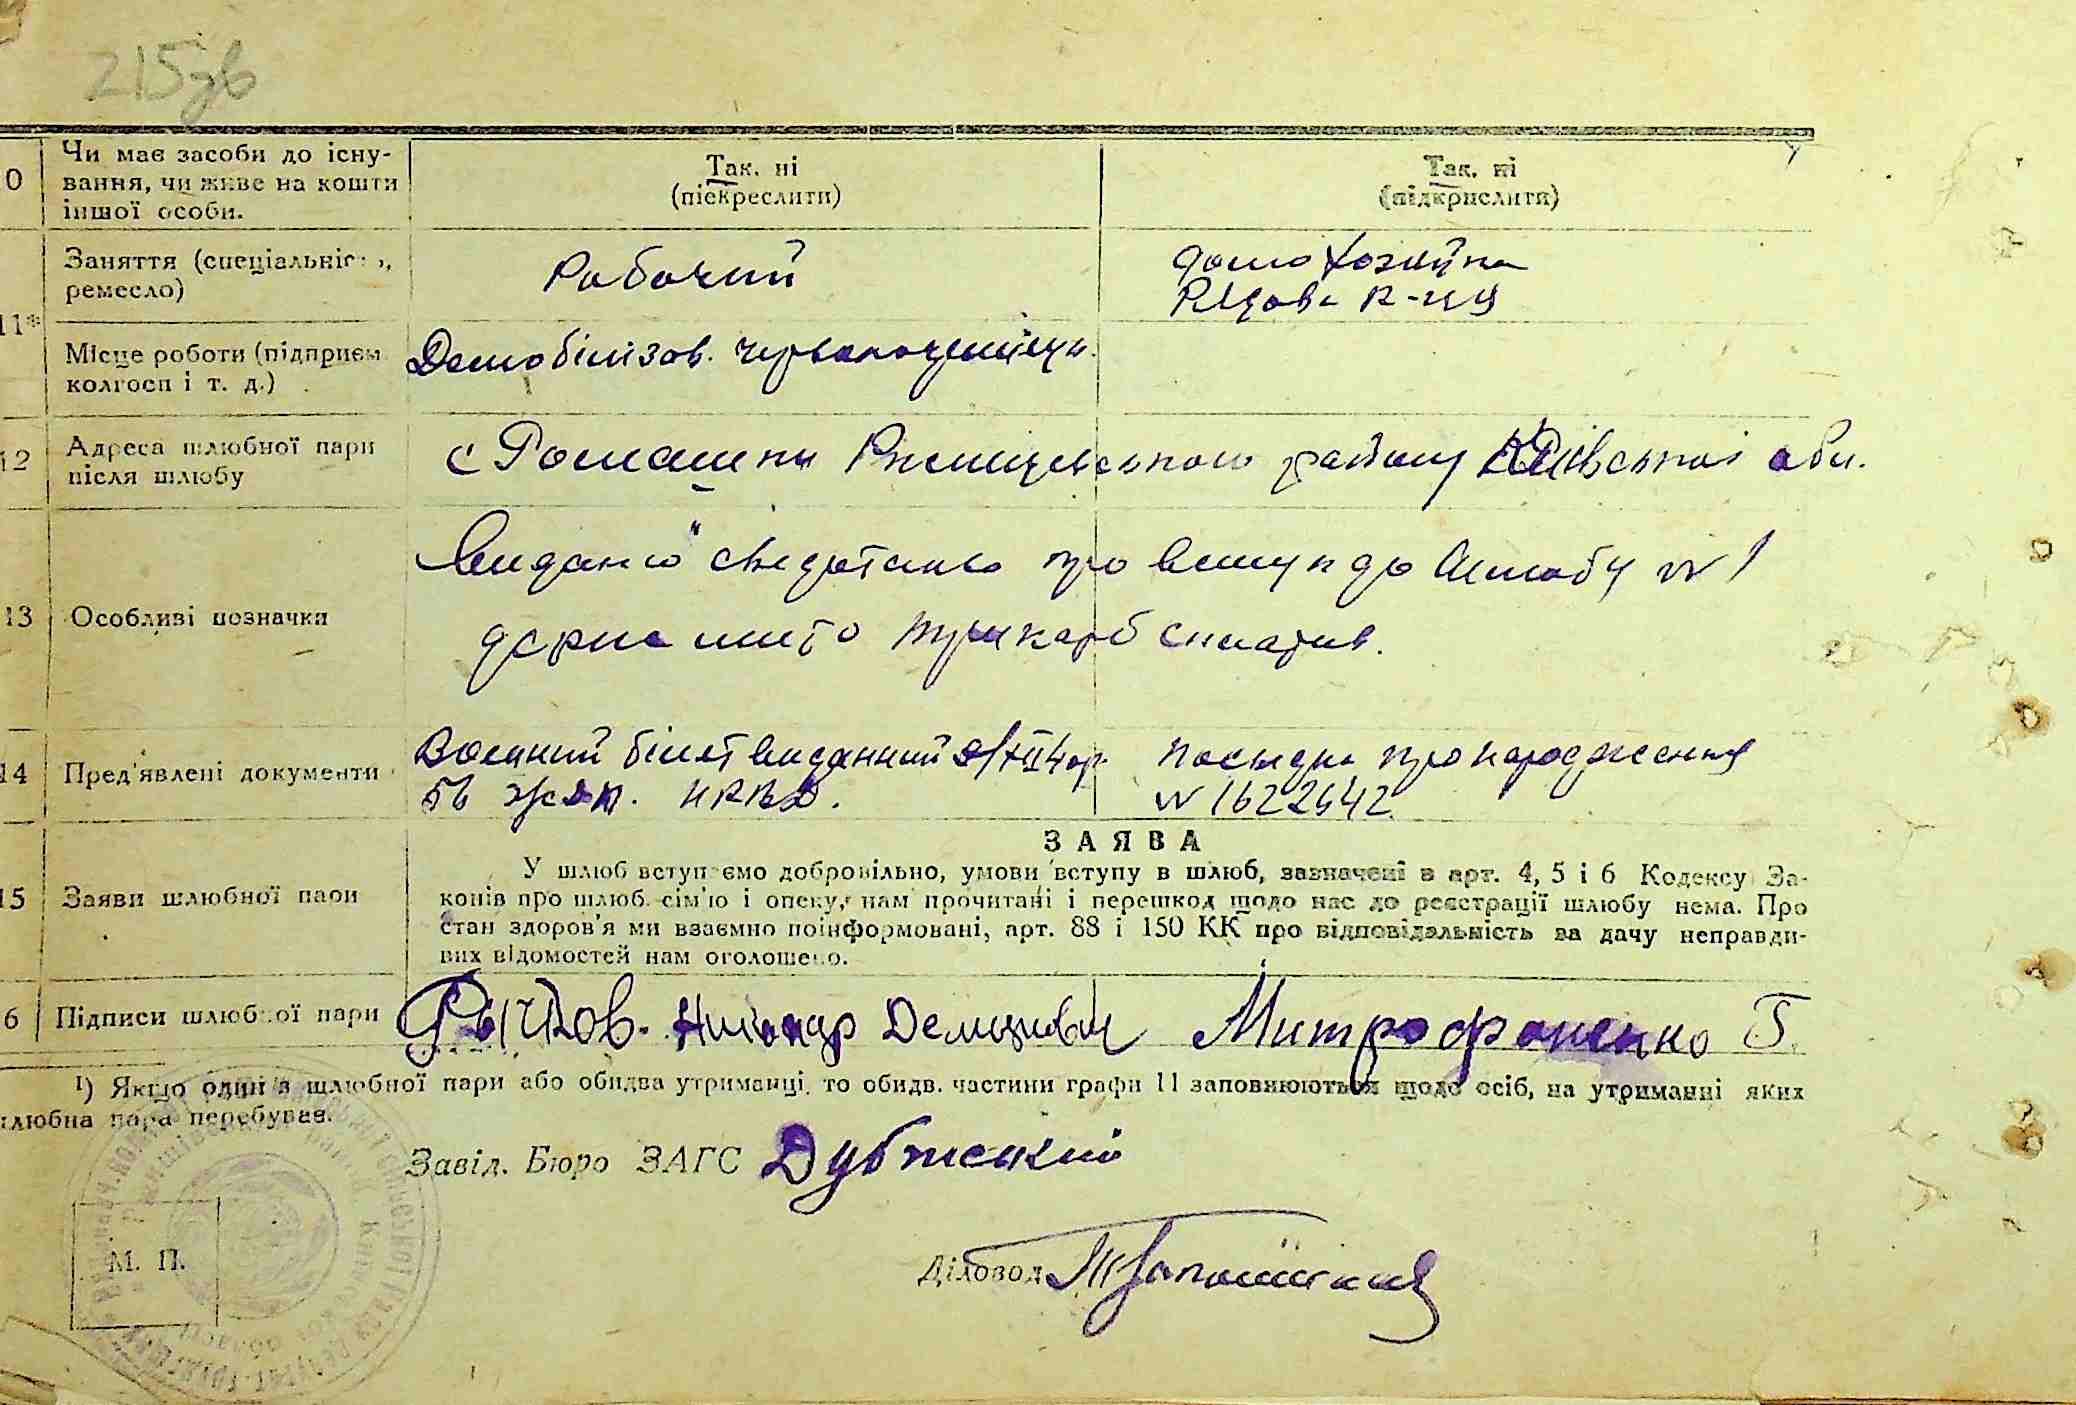 215зв
0 Чи має засоби до існу-
вання, чи живе на кошти
іншої особи.
Так. ні
(піекреслити)
Так. ні
(підкрислити)
Заняття (спеціальніс
ремесло)
Робочий
домохозяйка
11*
Місце роботи (підприєм
колгосп і т. д.)
Демобілізов. червоноармієць.
12 Адреса шлюбної пари
після шлюбу
с Ромашки Ракитянського району Київської обл.
13 Особливі позначки
Видано про вступ до Шлюбу № 1
держ мито три карб сплатив.
14 Пред'явлені документи
Воєнний білет виданний
НКВД.
про народження
№ 1622642
15 Заяви шлюбної пари
ЗАЯВА
У шлюб вступ ємо добровільно, умови вступу в шлюб, зазначені в арт. 4, 5 і 6 Кодексу За-
конів про шлюб. сім'ю і опеку, нам прочитані і перешкод щодо нас до реєстрації шлюбу нема. Про
стан здоров'я ми взаємно поінформовані, арт. 88 і 150 КК про відповідальність за дачу неправди-
вих відомостей нам оголошено.
6 Підписи шлюбної пари
Рычков. Никанор Демидович
Митрофаненко Г.
¹) Якщо один з шлюбної пари або обидва утриманці, то обидв. частини графи 11 заповнюються щодо осіб, на утриманні яких
шлюбна пара перебуває.
Завід. Бюро ЗАГС
М. П.
Діловод